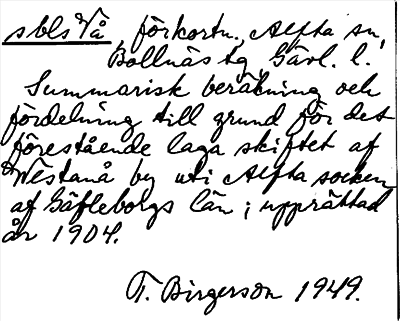 sbls Vå, förkortn., Alfta sn,
Bollnäs tg Gävl. l.
Summarisk beräkning och
fördelning till grund för det
förestående laga skiftet af
Westanå by uti Alfta socken
af Gäfleborgs län; upprättad
år 1904.
T. Birgerson 1949.